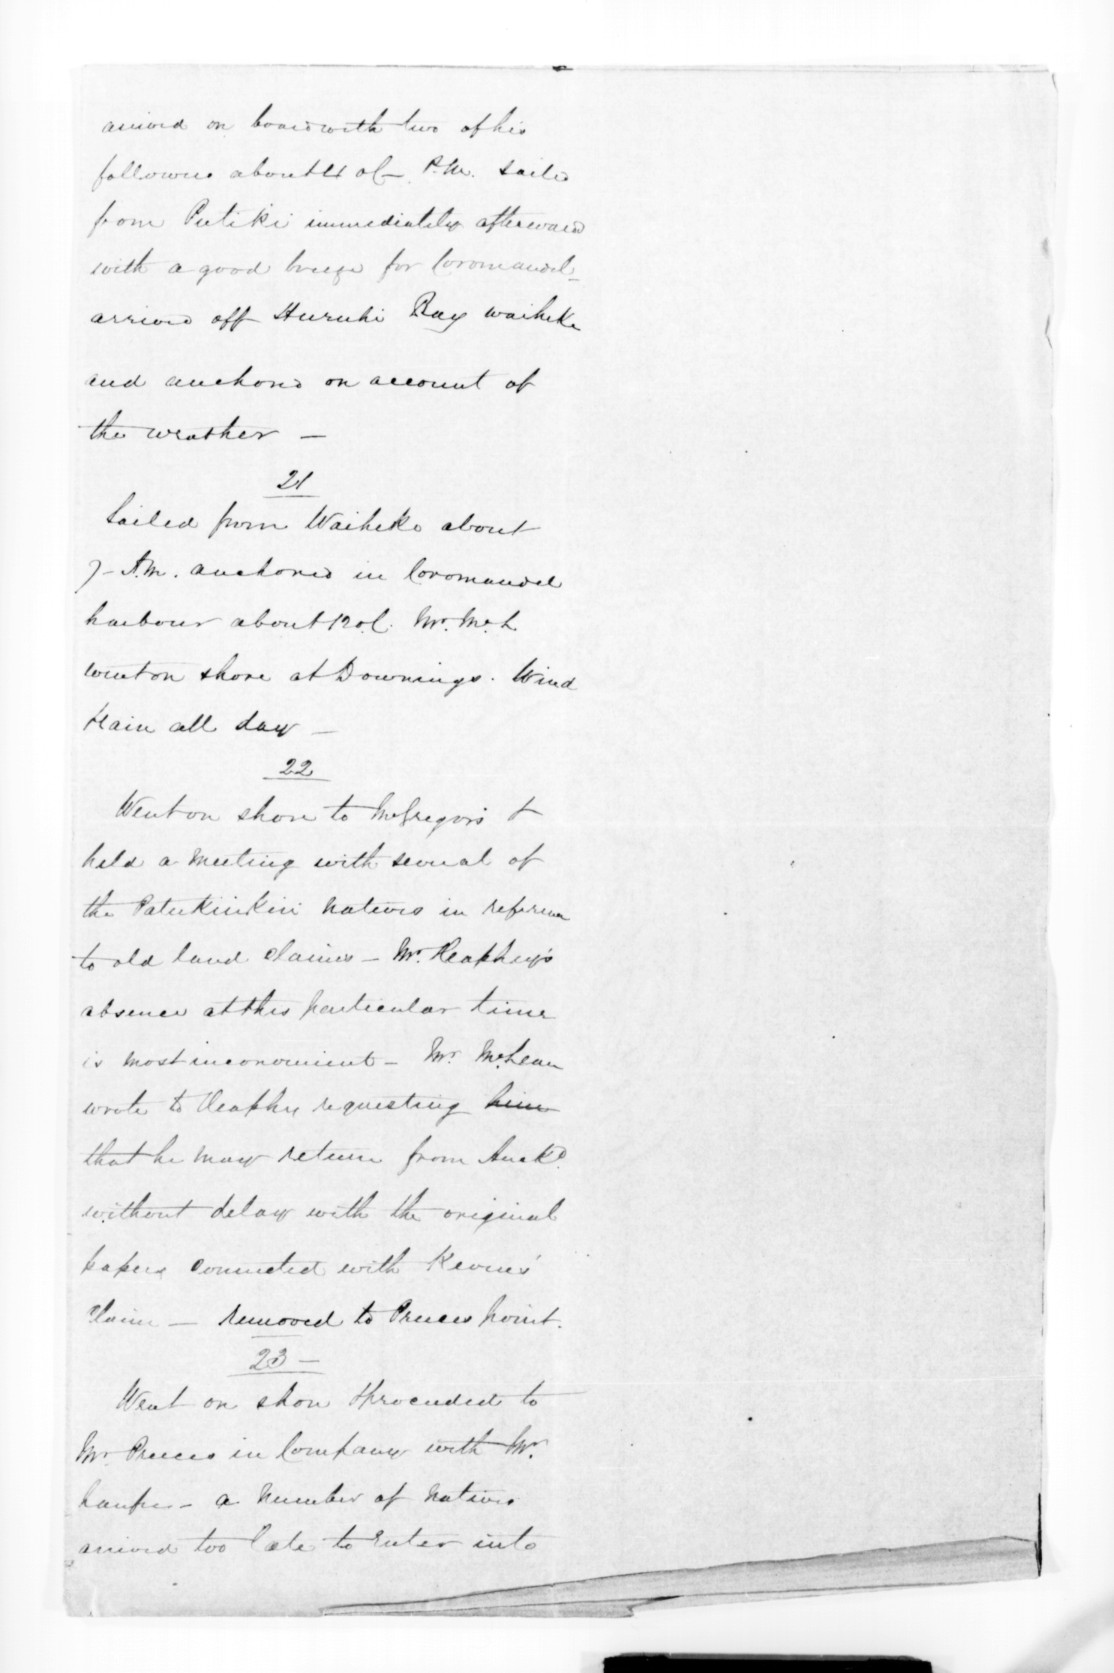 arrived on board with two of his
followers about 4 oC P.M. sailed
from Putiki immediately afterward
with a good breeze for Coromandel
arrived off Huruhi Bay Waiheke
and anchored on account of
the weather —
21
Sailed from Waiheke about
7 - A.M. anchored in Coromandel
harbour about 12 o.C. Mr. McL.
went on shore at Downings. Wind
& rain all day —
22
Went on shore to McGregor's &
held a meeting with several of
the Patukirikiri natives in reference
to old land claims — Mr. Heaphy's
absence at this particular time
is most inconvenient — Mr. McLean
wrote to Heaphy requesting him
that he may return from Auckd.
without delay with the original
papers connected with Keven's
claim — removed to Preeces point.
23 —
Went on shore & proceeded to
Mr. Preeces in Company with Mr.
— a number of natives
arrived too late to enter into